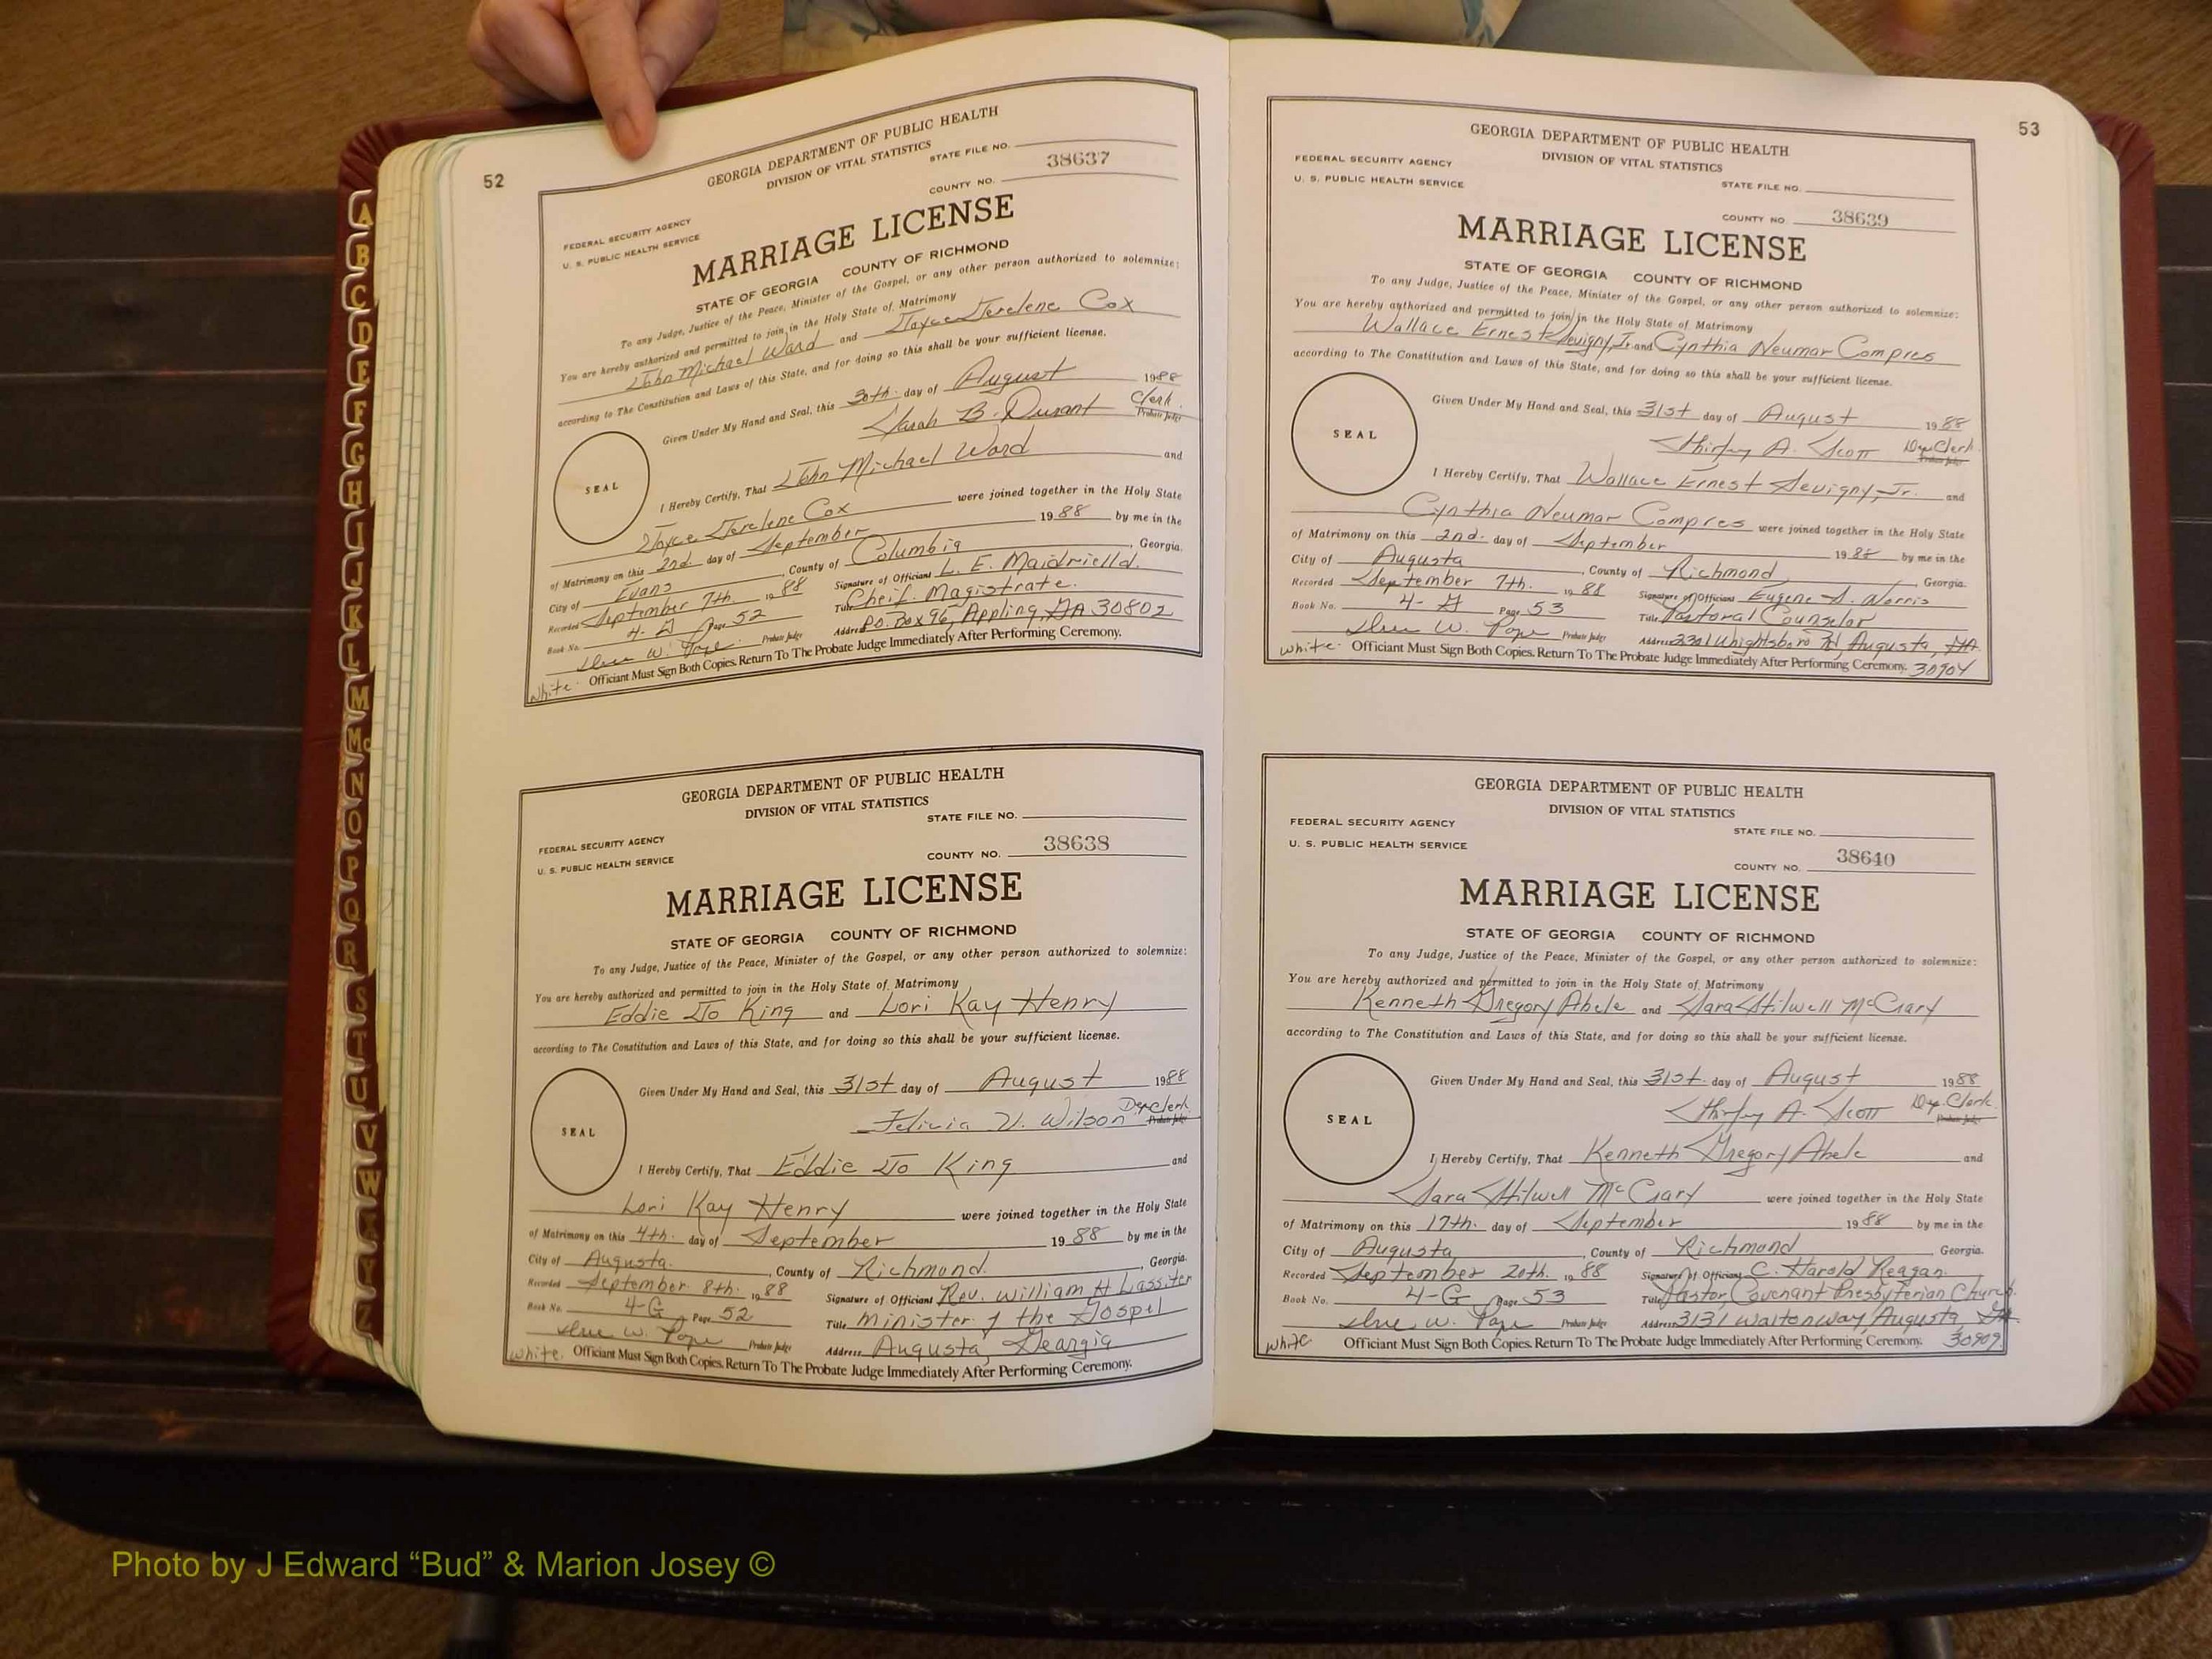 52
GEORGIA DEPARTMENT OF PUBLIC HEALTH
DIVISION OF VITAL STATISTICS
STATE FILE NO.
38637
COUNTY NO.
FEDERAL SECURITY AGENCY
U. S. PUBLIC HEALTH SERVICE
MARRIAGE LICENSE
STATE OF GEORGIA COUNTY OF RICHMOND
To any Judge, Justice of the Peace, Minister of the Gospel, or any other person authorized to solemnize:
You are hereby authorized and permitted to join in the Holy State of Matrimony
John Michael Ward and Joyce Jerelene Cox
according to The Constitution and Laws of this State, and for doing so this shall be your sufficient license.
Given Under My Hand and Seal, this 30th. day of August 1988
Sarah B. Durant Clerk.
Probate Judge
SEAL
I Hereby Certify, That John Michael Ward and
Joyce Jerelene Cox were joined together in the Holy State
of Matrimony on this 2nd. day of September 1988 by me in the
City of Evans, County of Columbia, Georgia.
Recorded September 7th. 1988 Signature of Officiant L. E. Maidriell
Book No. 4-G Page 52 Title Cheif. Magistrate.
W. Pope Probate Judge Address P.O. Box 96, Appling, GA 30802
white. Officiant Must Sign Both Copies. Return To The Probate Judge Immediately After Performing Ceremony.
GEORGIA DEPARTMENT OF PUBLIC HEALTH
DIVISION OF VITAL STATISTICS
STATE FILE NO.
FEDERAL SECURITY AGENCY
U. S. PUBLIC HEALTH SERVICE
COUNTY NO. 38638
MARRIAGE LICENSE
STATE OF GEORGIA COUNTY OF RICHMOND
To any Judge, Justice of the Peace, Minister of the Gospel, or any other person authorized to solemnize:
You are hereby authorized and permitted to join in the Holy State of Matrimony
Eddie Jo King and Lori Kay Henry
according to The Constitution and Laws of this State, and for doing so this shall be your sufficient license.
Given Under My Hand and Seal, this 31st day of August 1988
Felicia V. Wilson Dep Clerk
Probate Judge
SEAL
I Hereby Certify, That Eddie Jo King and
Lori Kay Henry were joined together in the Holy State
of Matrimony on this 4th. day of September 1988 by me in the
City of Augusta., County of Richmond., Georgia.
Recorded September 8th. 1988 Signature of Officiant Rev. William H Lassiter
Book No. 4-G Page 52 Title Minister of the Gospel
W. Pope Probate Judge Address Augusta, Georgia
white. Officiant Must Sign Both Copies. Return To The Probate Judge Immediately After Performing Ceremony.
53
GEORGIA DEPARTMENT OF PUBLIC HEALTH
DIVISION OF VITAL STATISTICS
FEDERAL SECURITY AGENCY
U. S. PUBLIC HEALTH SERVICE
STATE FILE NO.
COUNTY NO. 38639
MARRIAGE LICENSE
STATE OF GEORGIA COUNTY OF RICHMOND
To any Judge, Justice of the Peace, Minister of the Gospel, or any other person authorized to solemnize:
You are hereby authorized and permitted to join in the Holy State of Matrimony
Wallace Ernest Sevigny, Jr. and Cynthia Neumar Compres
according to The Constitution and Laws of this State, and for doing so this shall be your sufficient license.
Given Under My Hand and Seal, this 31st day of August 1988
Shirley A. Scott Dep Clerk
Probate Judge
SEAL
I Hereby Certify, That Wallace Ernest Sevigny, Jr. and
Cynthia Neumar Compres were joined together in the Holy State
of Matrimony on this 2nd. day of September 1988 by me in the
City of Augusta, County of Richmond, Georgia.
Recorded September 7th. 1988 Signature of Officiant Eugene S. Norris
Book No. 4-G Page 53 Title Pastoral Counselor
W. Pope Probate Judge Address 2301 Wrightsboro Rd, Augusta, GA.
white. Officiant Must Sign Both Copies. Return To The Probate Judge Immediately After Performing Ceremony. 30904
GEORGIA DEPARTMENT OF PUBLIC HEALTH
DIVISION OF VITAL STATISTICS
FEDERAL SECURITY AGENCY
U. S. PUBLIC HEALTH SERVICE
STATE FILE NO.
COUNTY NO. 38640
MARRIAGE LICENSE
STATE OF GEORGIA COUNTY OF RICHMOND
To any Judge, Justice of the Peace, Minister of the Gospel, or any other person authorized to solemnize:
You are hereby authorized and permitted to join in the Holy State of Matrimony
Kenneth Gregory Abele and Sara Stilwell McCrary
according to The Constitution and Laws of this State, and for doing so this shall be your sufficient license.
Given Under My Hand and Seal, this 31st. day of August 1988
Shirley A. Scott Dep. Clerk.
Probate Judge
SEAL
I Hereby Certify, That Kenneth Gregory Abele and
Sara Stilwell McCrary were joined together in the Holy State
of Matrimony on this 17th. day of September 1988 by me in the
City of Augusta, County of Richmond, Georgia.
Recorded September 20th. 1988 Signature of Officiant C. Harold Reagan
Book No. 4-G Page 53 Title Pastor, Covenant Presbyterian Church.
W. Pope Probate Judge Address 3131 Walton way, Augusta, GA.
white Officiant Must Sign Both Copies. Return To The Probate Judge Immediately After Performing Ceremony. 30909
A
B
C
D
E
F
G
H
I
J
K
L
M
Mc
N
O
P
Q
R
S
T
U
V
W
X
Y
Z
Photo by J Edward “Bud” & Marion Josey ©